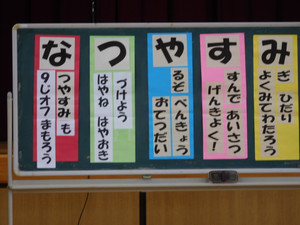 なつやすみ
なつやすみ も
９じオフ まもろう
つづけよう
はやね はやおき
やるぞ べんきょう
おてつだい
すすんで あいさつ
げんきよく！
みぎ ひだり
よくみてわたろう